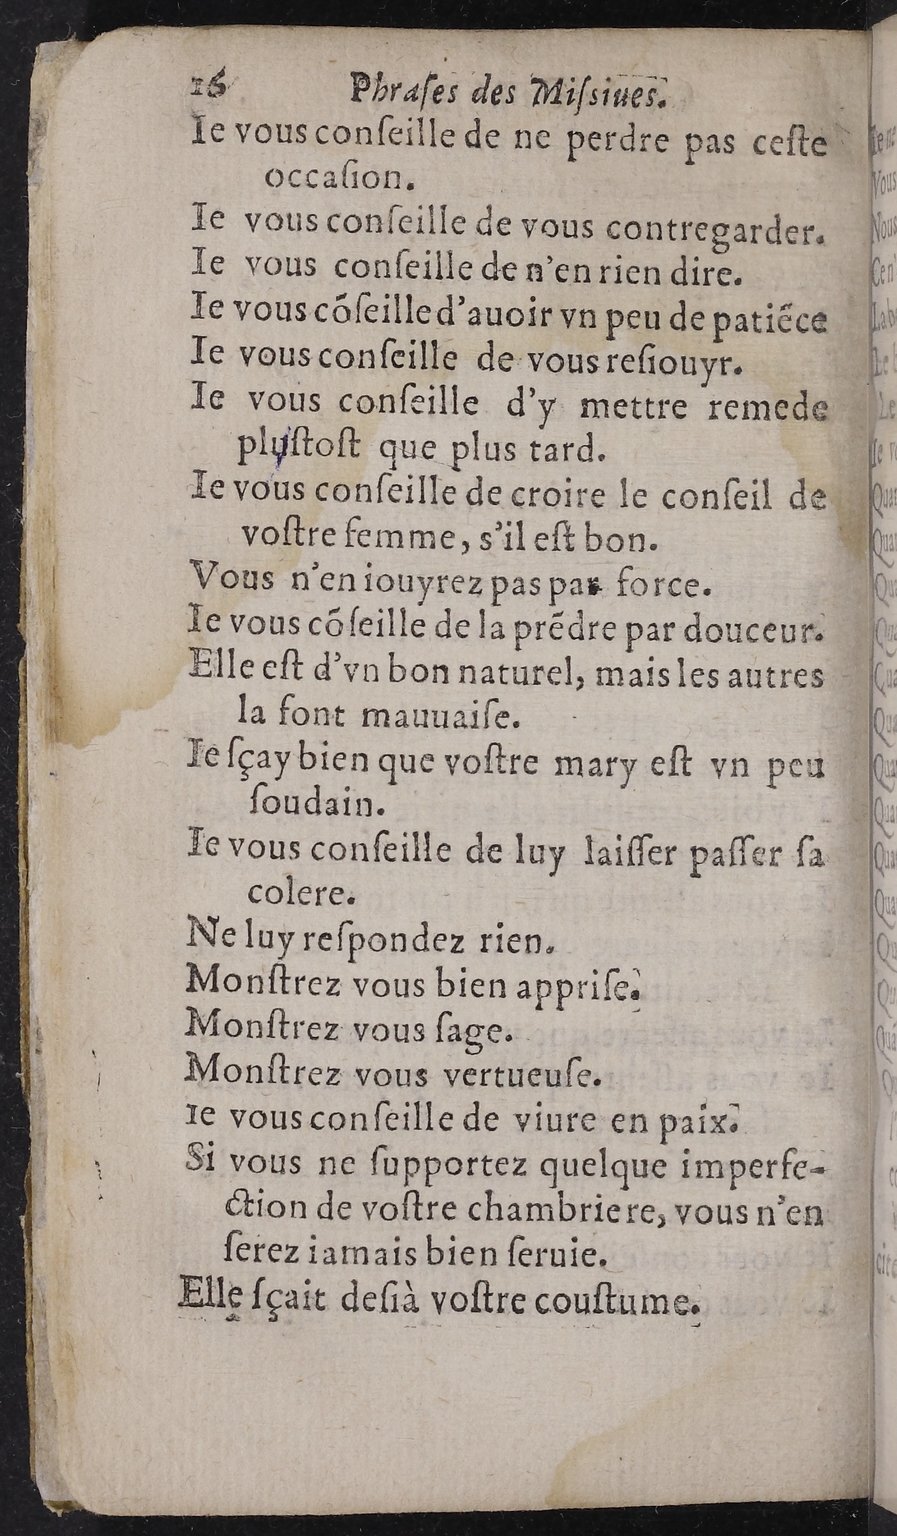 16 Phraſes des Miſsiues.
Ie vous conſeille de ne perdre pas ceſte
occaſion.
Ie vous conſeille de vous contregarder.
Ie vous conſeille de n'en rien dire.
Ie vous cõſeille d'auoir vn peu de patiẽce
Ie vous conſeille de vous reſiouyr.
Ie vous conſeille d'y mettre remede
pluſtoſt que plus tard.
Ie vous conſeille de croire le conſeil de
voſtre femme, s'il eſt bon.
Vous n'en iouyrez pas par force.
Ie vous cõſeille de la prẽdre par douceur.
Elle eſt d'vn bon naturel, mais les autres
la font mauuaiſe.
Ie ſçay bien que voſtre mary eſt vn peu
ſoudain.
Ie vous conſeille de luy laiſſer paſſer ſa
colere.
Ne luy reſpondez rien.
Monſtrez vous bien appriſe.
Monſtrez vous ſage.
Monſtrez vous vertueuſe.
Ie vous conſeille de viure en paix.
Si vous ne ſupportez quelque imperfe-
ction de voſtre chambriere, vous n'en
ſerez iamais bien ſeruie.
Elle ſçait deſià voſtre couſtume.